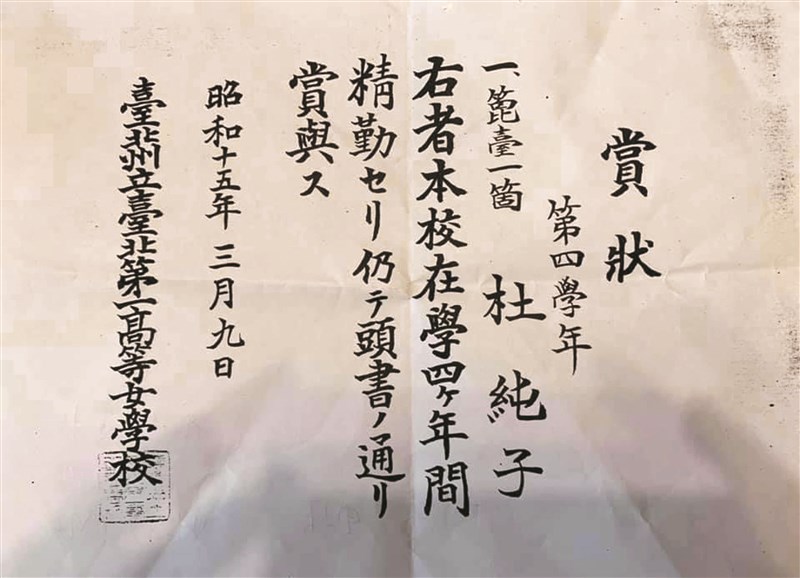 賞狀
第四學年
杜純子
一、篦臺一箇
右者本校在學四ヶ年間
精勤セリ仍テ頭書ノ通リ
賞與ス
昭和十五年三月九日
臺北州立臺北第一高等女學校